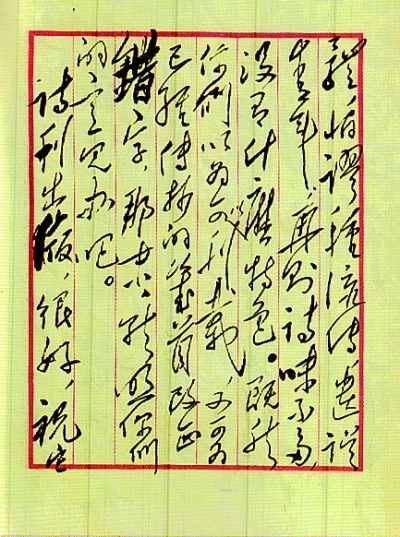 體，怕谬种流传，遗误
青年；再则诗味不多，
没有什麽特色。既然
你们以为可以刊载，又可为
已经传抄的几首改正
错字，那末，就照你们
的意见办吧。
诗刊出版，很好，祝它